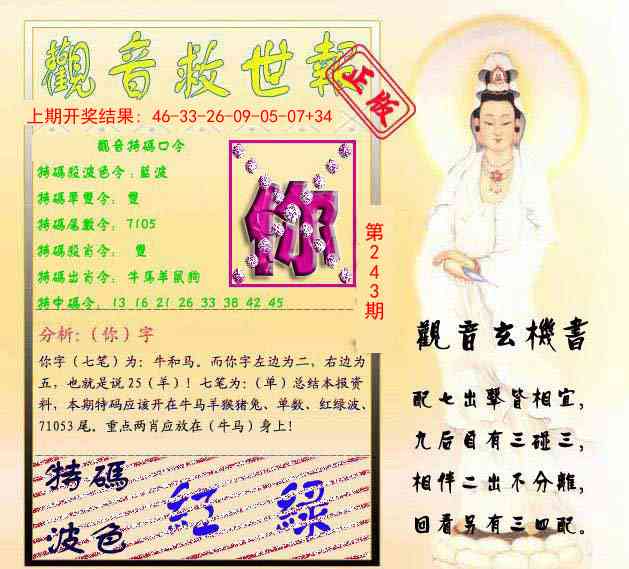 觀音救世報
正版
上期开奖结果：46-33-26-09-05-07+34
觀音特碼口令
特碼段波色令:藍波
特碼單雙令： 雙
特碼尾數令： 7105
特碼段肖令： 雙
特碼出肖令：牛马羊鼠狗
特中碼令：13 16 21 26 33 38 42 45
你
第243期
分析:（你）字
你字（七笔）为：牛和马。而你字左边为二，右边为
五，也就是说 25（羊）！七笔为：（单）总结本报资
料，本期特码应该开在牛马羊猴猪兔、单数、红绿波、
71053 尾。重点两肖应放在（牛马）身上！
特碼
波色
紅 綠
觀音玄機書
配七出擊皆相宜,
九后自有三碰三,
相伴二出不分離,
回看另有三四配。